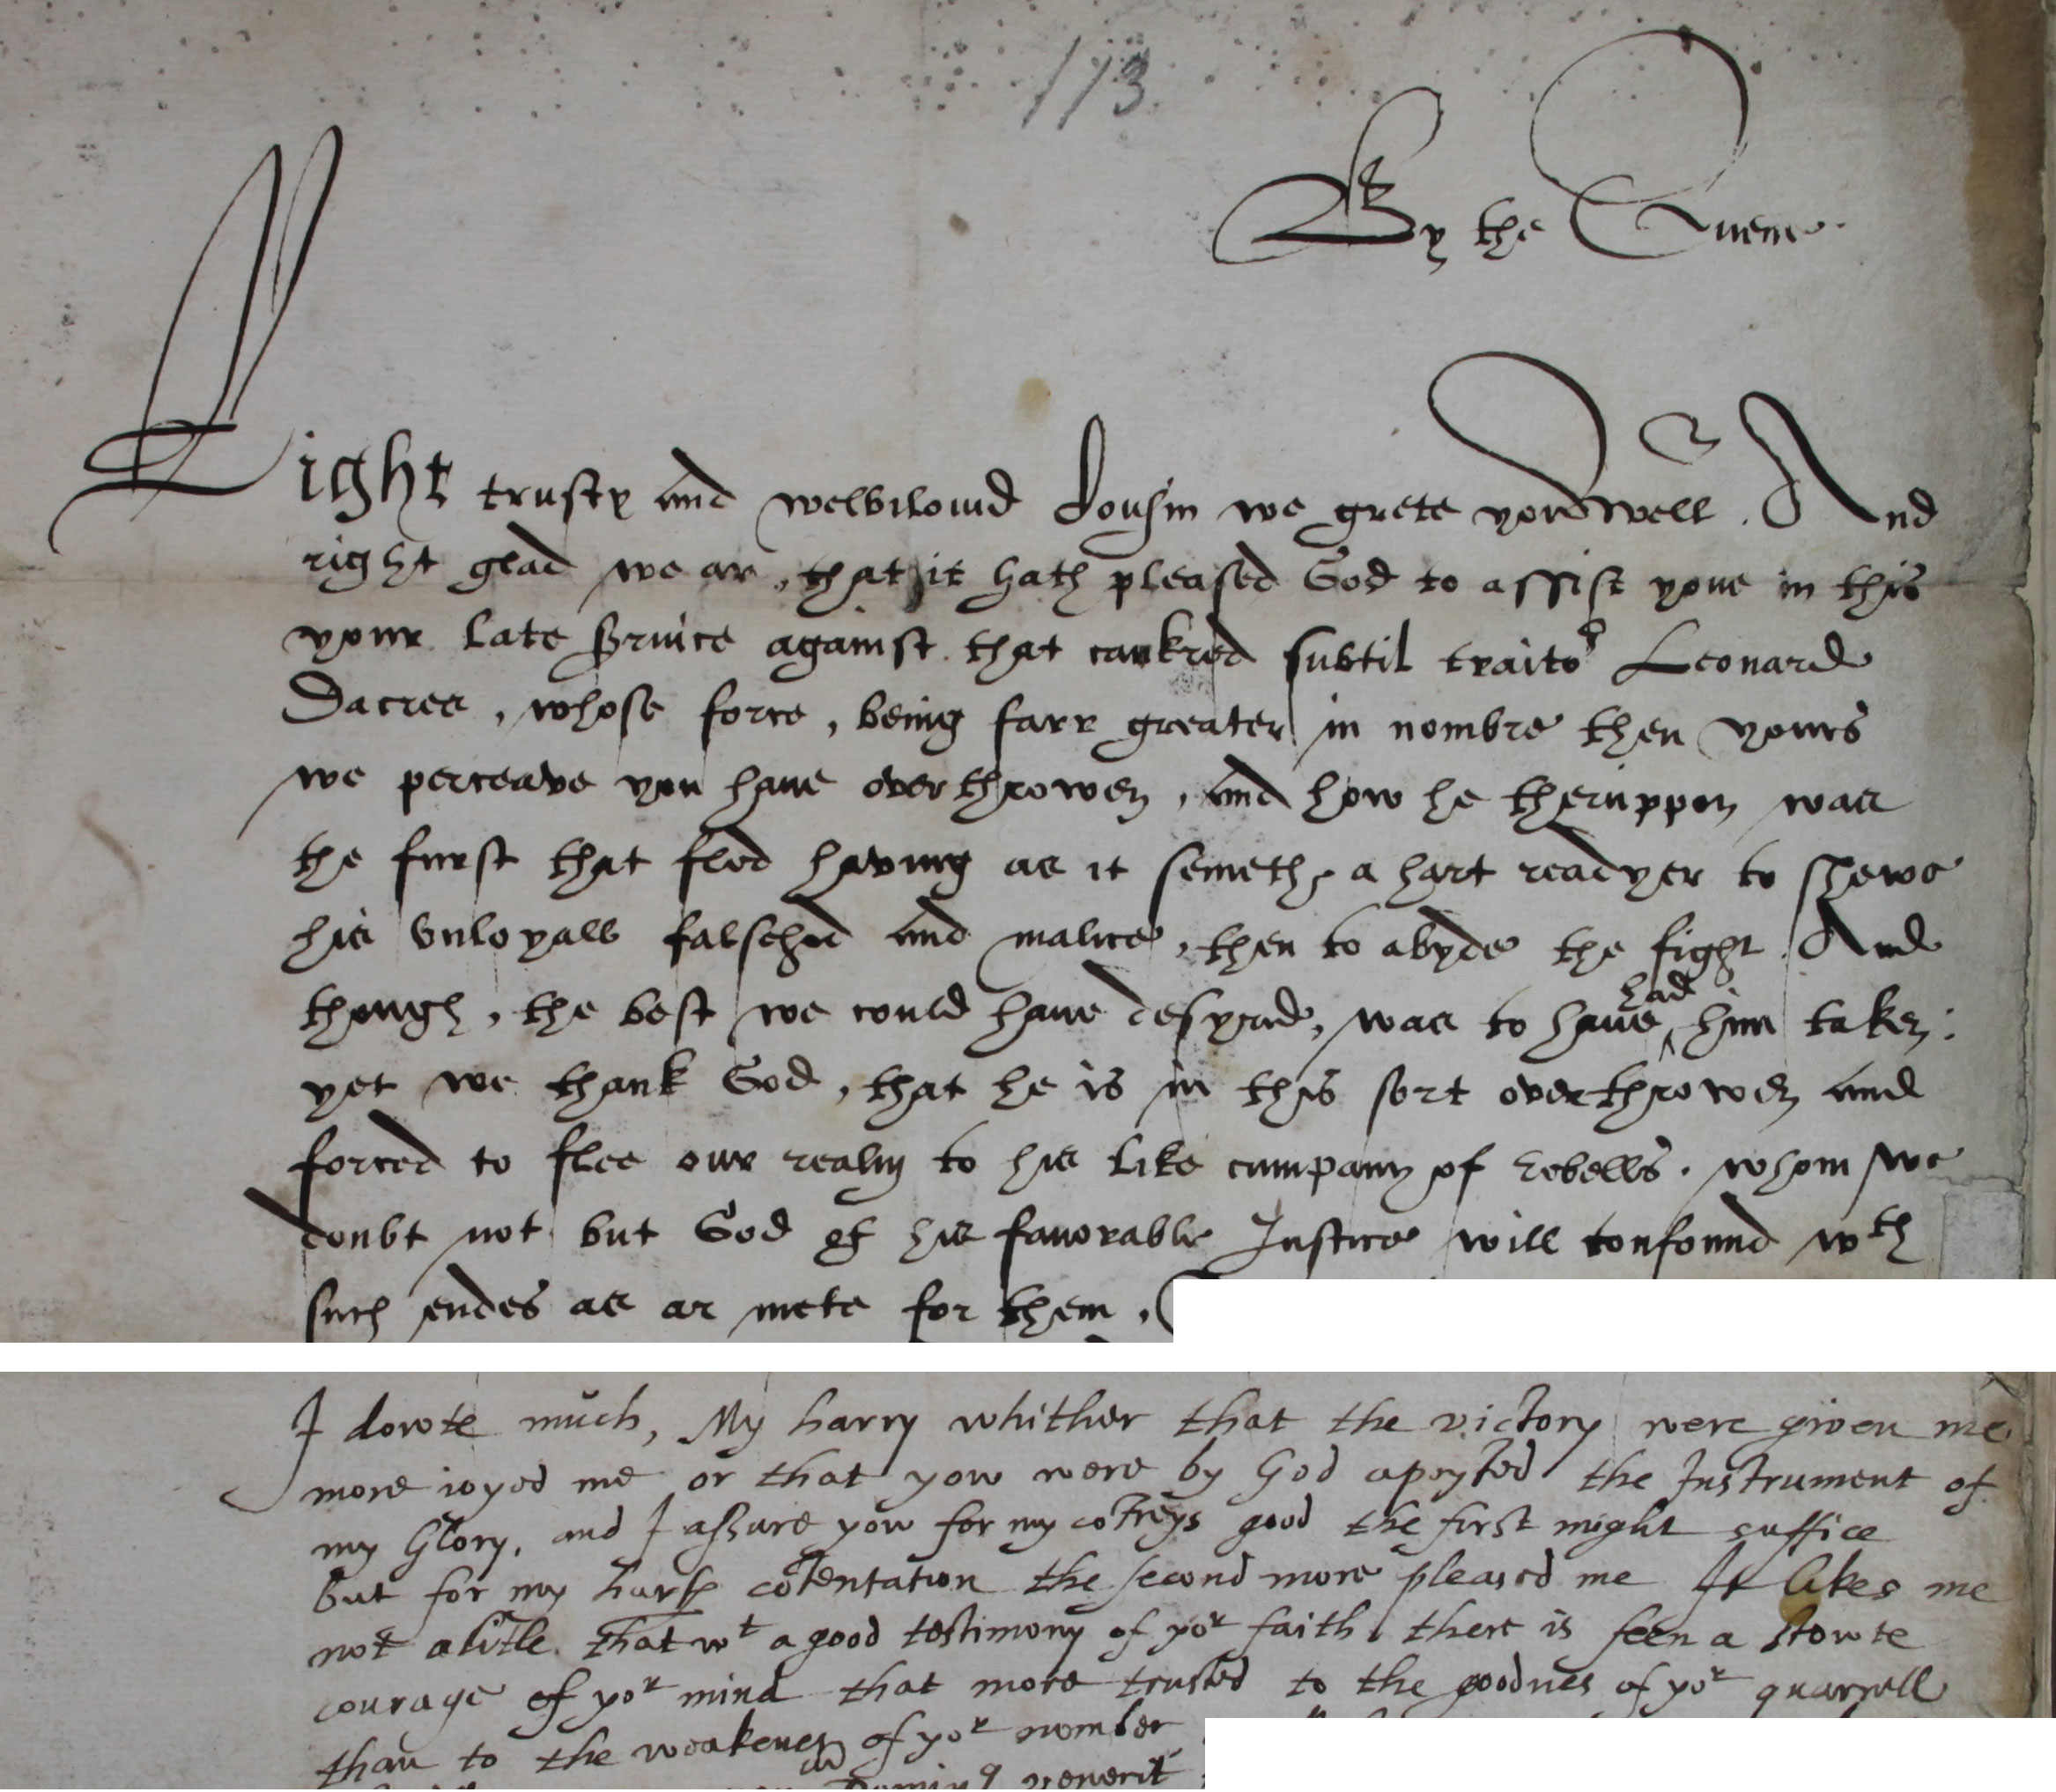 113
By the Quene
Right trusty and welbiloued Cousin we grete you well. And
right glad we ar, that it hath pleased God to assist youe in this
your late seruice against that cankred subtil traitor Leonard
Dacres, whose force, being farr greater in nombre then yours
we perceave you haue overthrowen, and how he theruppon was
the furst that fled having as it semeth, a hart readyer to shewe
his vnloyall falsehed and malice, then to abyde the fight. And
though, the best we could haue desyred, was to haue had him taken:
yet we thank God, that he is in this sort overthrowen and
forced to flee our realm to his like cumpany of rebells. whom we
doubt not but God of his favorable Justice will confound wth
such endes as ar mete for them.
I dowte much, My harry whither that the victory were given me
more ioyed me or that yow were by God apoyted the Instrument of
my Glory, and I assure yow for my cotreys good the first might suffice
but for my harts cotentation the second more pleased me It likes me
not a litle that wt a good testimony of yor faith there is seen a stowte
courage of yor mind that more trusted to the goodnes of yor quarrell
than to the weakenes of yor nomber
venerit